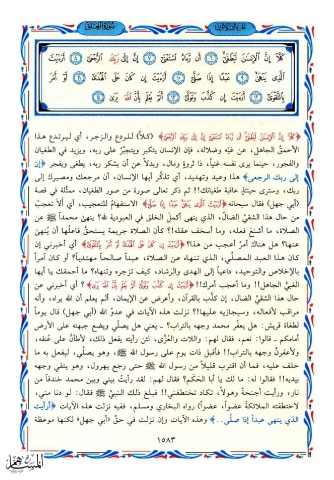 سورة العلق
الجزء الثلاثون
كَلَّا إِنَّ الْإِنسَانَ لَيَطْغَىٰ ۝ أَن رَّآهُ اسْتَغْنَىٰ ۝ إِنَّ إِلَىٰ رَبِّكَ الرُّجْعَىٰ ۝ أَرَأَيْتَ
الَّذِي يَنْهَىٰ ۝ عَبْدًا إِذَا صَلَّىٰ ۝ أَرَأَيْتَ إِن كَانَ عَلَى الْهُدَىٰ ۝ أَوْ أَمَرَ
بِالتَّقْوَىٰ ۝ أَرَأَيْتَ إِن كَذَّبَ وَتَوَلَّىٰ ۝ أَلَمْ يَعْلَم بِأَنَّ اللَّهَ يَرَىٰ ۝
﴿كَلَّا إِنَّ الْإِنسَانَ لَيَطْغَىٰ أَن رَّآهُ اسْتَغْنَىٰ إِنَّ إِلَىٰ رَبِّكَ الرُّجْعَىٰ﴾ (كلا) للردع والزجر، أي ليرتدع هذا
الأحمق الجاهل، عن غيه وضلاله، فإن الإنسان يتكبر ويتجبر على ربه، ويزيد في الطغيان
والفجور، حينما يرى نفسه غنياً، ذا ثروة ومال، وبدلاً عن أن يشكر ربه، يطغى ويفجر ﴿إن
إلى ربك الرجعى﴾ هذا وعيد وتهديد، أي تذكر أيها الإنسان، أن مرجعك ومصيرك إلى
ربك، وسترى حينئذ عاقبة طغيانك!! ثم ذكر تعالى صورة من صور الطغيان، ممثلة في قصة
(أبي جهل) فقال سبحانه ﴿أَرَأَيْتَ الَّذِي يَنْهَىٰ عَبْدًا إِذَا صَلَّىٰ﴾ الاستفهام للتعجيب، أي ألا تعجب
من حال هذا الشقي الضال، الذي ينهى أكمل الخلق في العبودية لله؟ ينهى محمداً ﷺ عن
الصلاة، ما أشنع فعله، وما أسخف عقله!؟ كأن الصلاة جريمة يستحق فاعلها أن ينهى
عنها؟ هل هناك أمر أعجب من هذا؟ ﴿أَرَأَيْتَ إِن كَانَ عَلَى الْهُدَىٰ أَوْ أَمَرَ بِالتَّقْوَىٰ﴾ أي أخبرني إن
كان هذا العبد المصلي، الذي تنهاه عن الصلاة، عبداً صالحاً مهتدياً؟ أو كان آمراً
بالإخلاص والتوحيد، داعياً إلى الهدى والرشاد، كيف تزجره وتنهاه؟ ما أحمقك يا أيها
الغبي الجاهل!! وما أعجب أمرك!! ﴿أَرَأَيْتَ إِن كَذَّبَ وَتَوَلَّىٰ أَلَمْ يَعْلَم بِأَنَّ اللَّهَ يَرَىٰ﴾؟ أي أخبرني عن
حال هذا الشقي الضال، إن كذب بالقرآن، وأعرض عن الإيمان، ألم يعلم أن الله يراه، وأنه
مراقب لأفعاله، وسيجازيه عليها!؟ نزلت هذه الآيات في عدو الله (أبي جهل) قال يوماً
لطغاة قريش: هل يعفر محمد وجهه بالتراب؟ ـ يعني هل يصلي ويضع جبهته على الأرض
أمامكم ـ قالوا: نعم، فقال لهم: واللات والعزى، لئن رأيته يفعل ذلك، لأطأن على عنقه،
ولأعفرن وجهه بالتراب!! فأقبل ذات يوم على رسول الله ﷺ، وهو يصلي، ليفعل به ما
حلف عليه، فما أن اقترب قليلاً من رسول الله ﷺ حتى رجع يهرول، وهو يتقي وجهه
بيديه!! فقالوا له: ما لك يا أبا الحكم؟ فقال لهم: لقد رأيت بيني وبين محمد خندقاً من
نار، ورأيت أجنحة وهولاً، تكاد تختطفني!! فبلغ ذلك النبي ﷺ فقال: لو دنا مني،
لاختطفته الملائكة عضواً، عضواً) رواه البخاري ومسلم، ففيه نزلت هذه الآيات ﴿أرأيت
الذي ينهى عبداً إذا صلى..﴾ وهذه الآيات وإن نزلت في حق (أبي جهل) لكنها موعظة
١٥٨٣